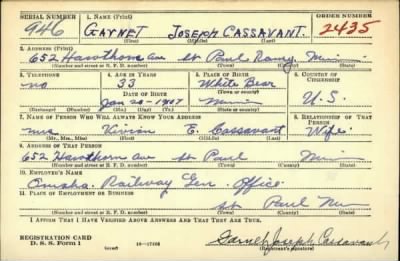 SERIAL NUMBER 1. NAME (Print) ORDER NUMBER
946 GAYNET JOSEPH CASSAVANT. 2435
(First) (Middle) (Last)
2. ADDRESS (Print)
652 Hawthorn Ave St Paul Ramy Minn
(Number and street or R. F. D. number) (Town) (County) (State)
3. TELEPHONE 4. AGE IN YEARS 5. PLACE OF BIRTH 6. COUNTRY OF CITIZENSHIP
no 33 White Bear
DATE OF BIRTH (Town or county)
Jan 20-1907 Minn U.S.
(Exchange) (Number) (Mo.) (Day) (Yr.) (State or country)
7. NAME OF PERSON WHO WILL ALWAYS KNOW YOUR ADDRESS 8. RELATIONSHIP OF THAT PERSON
Mrs Vivian E. Cassavant Wife
(Mr., Mrs., Miss) (First) (Middle) (Last)
9. ADDRESS OF THAT PERSON
652 Hawthorn Ave St Paul Minn
(Number and street or R. F. D. number) (Town) (County) (State)
10. EMPLOYER'S NAME
Omaha. Railway Gen. Office.
11. PLACE OF EMPLOYMENT OR BUSINESS
St Paul
(Number and street or R. F. D. number) (Town) (County) (State)
I AFFIRM THAT I HAVE VERIFIED ABOVE ANSWERS AND THAT THEY ARE TRUE.
REGISTRATION CARD
D. S. S. Form 1 16-17105 Joseph Cassavant
(Registrant's signature)